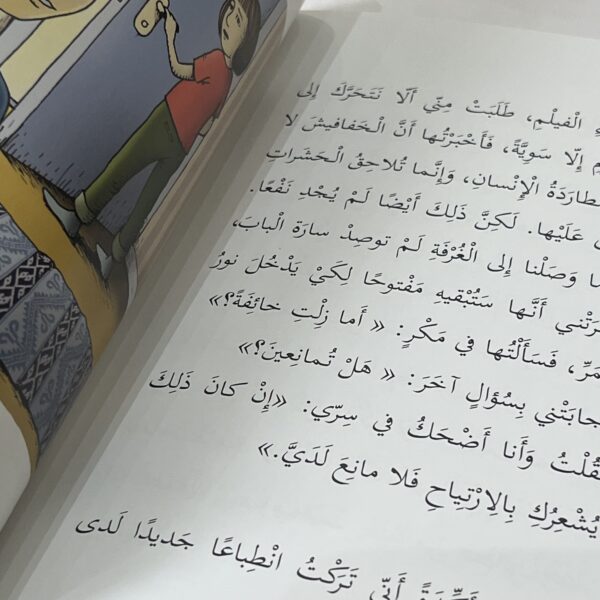 الْفيلْمِ، طَلَبَتْ مِنّي أَلّا نَتَحَرَّكَ إلى
إلّا سَوِيَّةً، فَأَخْبَرْتُها أَنَّ الْخَفافيشَ لا
الْإِنْسانِ، وَإِنَّما تُلاحِقُ الْحَشَراتِ
عَلَيْها. لَكِنَّ ذَلِكَ أَيْضًا لَمْ يُجْدِ نَفْعًا.
وَصَلْنا إلى الْغُرْفَةِ لَمْ توصِدْ سارَة الْبابَ،
أَنَّها سَتُبْقيهِ مَفْتوحًا لِكَيْ يَدْخُلَ نورُ
فَسَأَلْتُها في مَكْرٍ: « أَما زِلْتِ خائِفَةً؟»
بِسُؤالٍ آخَرَ: « هَلْ تُمانِعينَ؟»
وَأَنا أَضْحَكُ في سِرّي: «إِنْ كانَ ذَلِكَ
يُشْعِرُكِ بِالِارْتِياحِ فَلا مانِعَ لَدَيَّ.»
أَنّي تَرَكْتُ انْطِباعًا جَديدًا لَدى